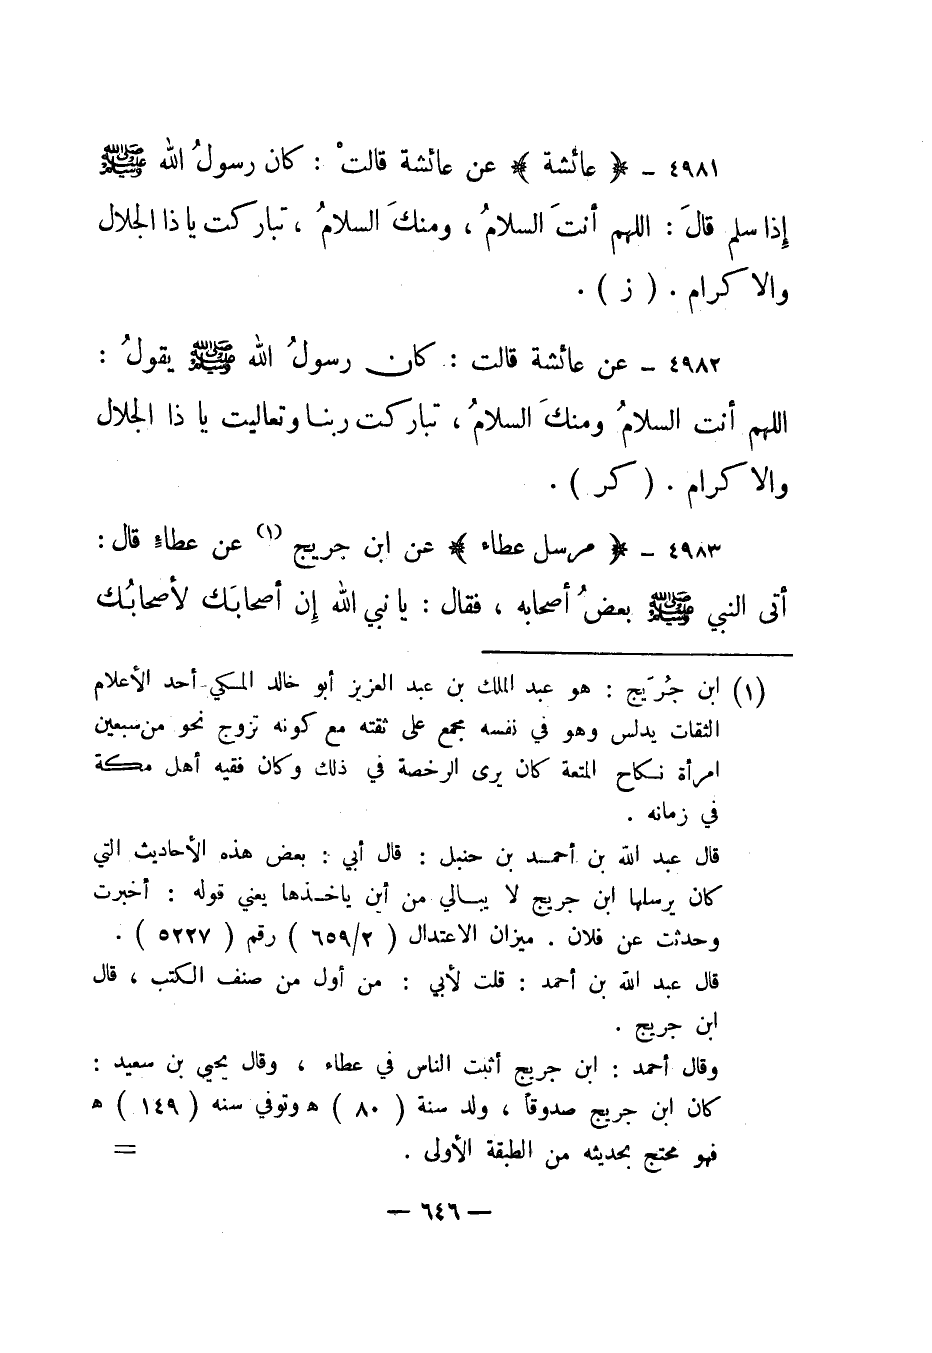 ٤٩٨١ ـ ﴿ عائشة ﴾ عن عائشة قالتْ : كان رسولُ الله ﷺ
إذا سلم قالَ : اللهم أنتَ السلامُ ، ومنكَ السلامُ ، تباركت يا ذا الجلال
والاكرام . ( ز ) .
٤٩٨٢ ـ عن عائشة قالت : كان رسولُ الله ﷺ يقولُ :
اللهم أنت السلامُ ومنكَ السلامُ ، تباركت ربنا وتعاليت يا ذا الجلال
والاكرام . ( كر ) .
٤٩٨٣ ـ ﴿ مرسل عطاء ﴾ عن ابن جريج (١) عن عطاءٍ قال :
أتى النبي ﷺ بعضُ أصحابه ، فقال : يا نبي الله إن أصحابَك لأصحابُك
(١) ابن جُرَيج : هو عبد الملك بن عبد العزيز أبو خالد المكي أحد الأعلام
الثقات يدلس وهو في نفسه مجمع على ثقته مع كونه تزوج نحو من سبعين
امرأة نكاح المتعة كان يرى الرخصة في ذلك وكان فقيه أهل مكة
في زمانه .
قال عبد الله بن أحمد بن حنبل : قال أبي : بعض هذه الأحاديث التي
كان يرسلها ابن جريج لا يبالي من أين ياخذها يعني قوله : أخبرت
وحدثت عن فلان . ميزان الاعتدال ( ٦٥٩/٢ ) رقم ( ٥٢٢٧ ) .
قال عبد الله بن أحمد : قلت لأبي : من أول من صنف الكتب ، قال
ابن جريج .
وقال أحمد : ابن جريج أثبت الناس في عطاء ، وقال يحيى بن سعيد :
كان ابن جريج صدوقاً ، ولد سنة ( ٨٠ ) ه وتوفي سنه ( ١٤٩ ) ه
فهو محتج بحديثه من الطبقة الأولى . =
— ٦٤٦ —